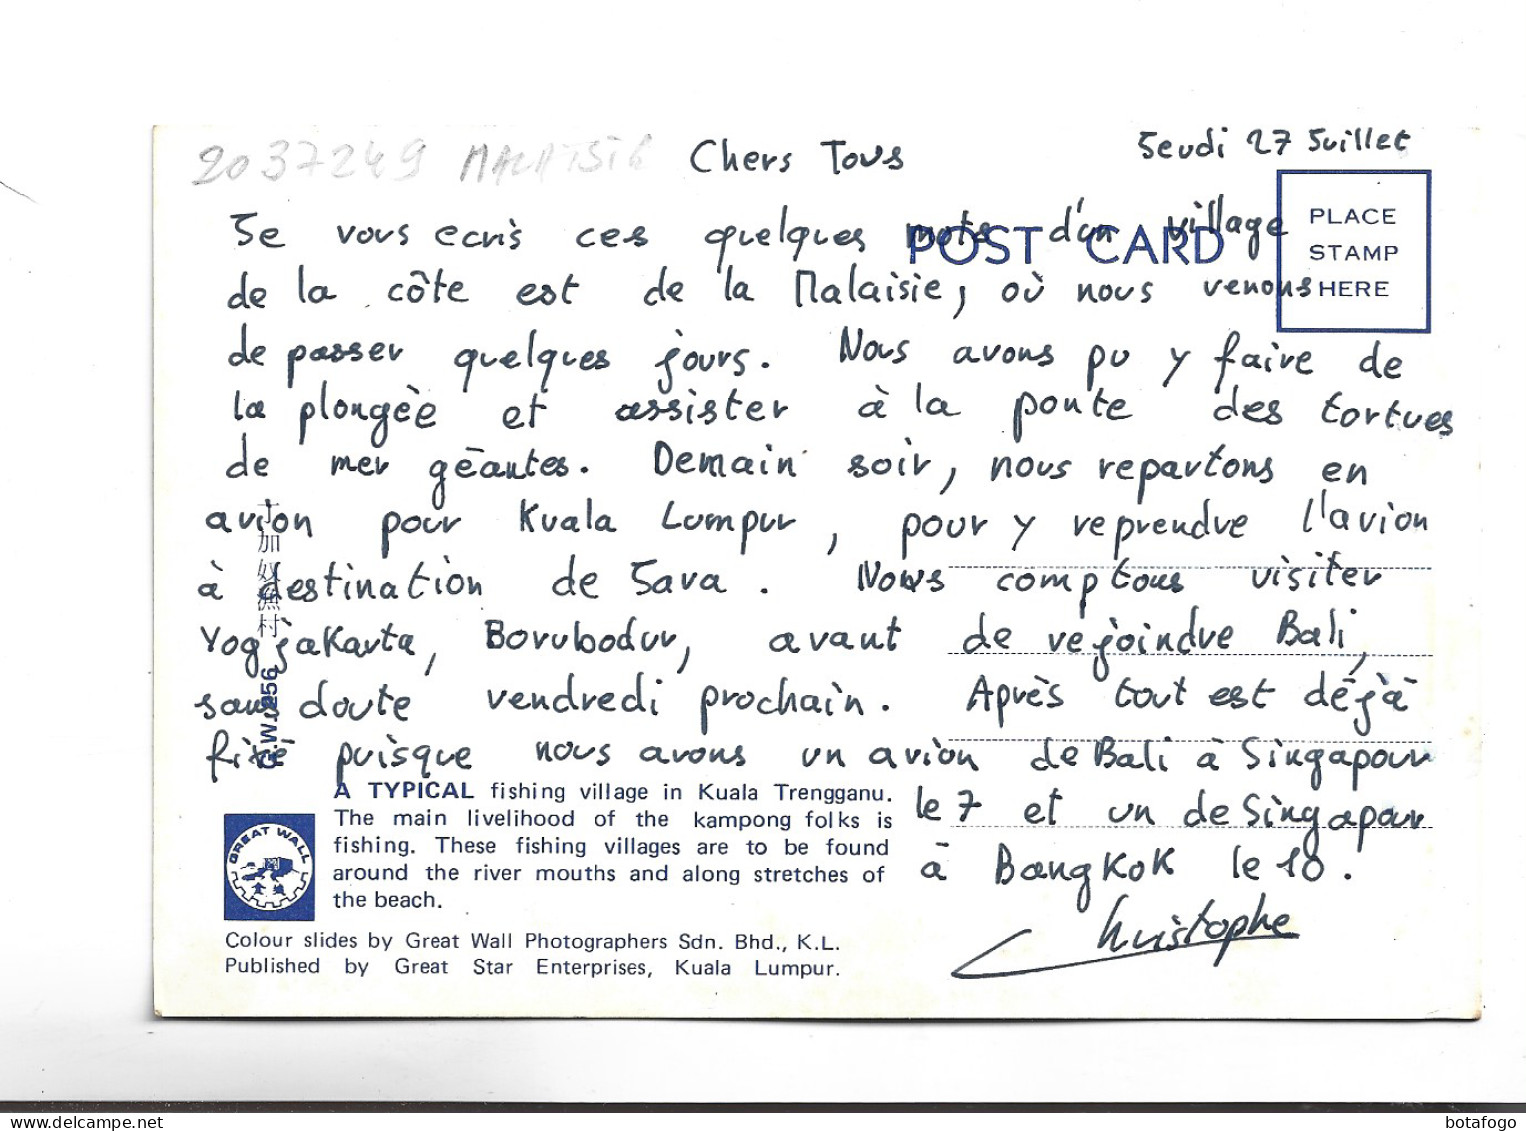 Jeudi 27 Juillet
2037249 MALAISIE Chers Tous
POST CARD
PLACE
STAMP
HERE
Je vous ecris ces quelques mots d'un village
de la côte est de la Malaisie, où nous venons
de passer quelques jours. Nous avons pu y faire de
la plongèe et assister à la ponte des tortues
de mer géantes. Demain soir, nous repartons en
avion pour Kuala Lumpur, pour y reprendre l'avion
à destination de Java. Nous comptons visiter
Yogjakarta, Borubodur, avant de rejoindre Bali,
sans doute vendredi prochain. Après tout est déjà
fixé puisque nous avons un avion de Bali à Singapour
le 7 et un de Singapour
à Bangkok le 10.
Christophe
丁加奴漁村
G.W. 256
A TYPICAL fishing village in Kuala Trengganu.
The main livelihood of the kampong folks is
fishing. These fishing villages are to be found
around the river mouths and along stretches of
the beach.
GREAT WALL
Colour slides by Great Wall Photographers Sdn. Bhd., K.L.
Published by Great Star Enterprises, Kuala Lumpur.
delcampe.net
botafogo